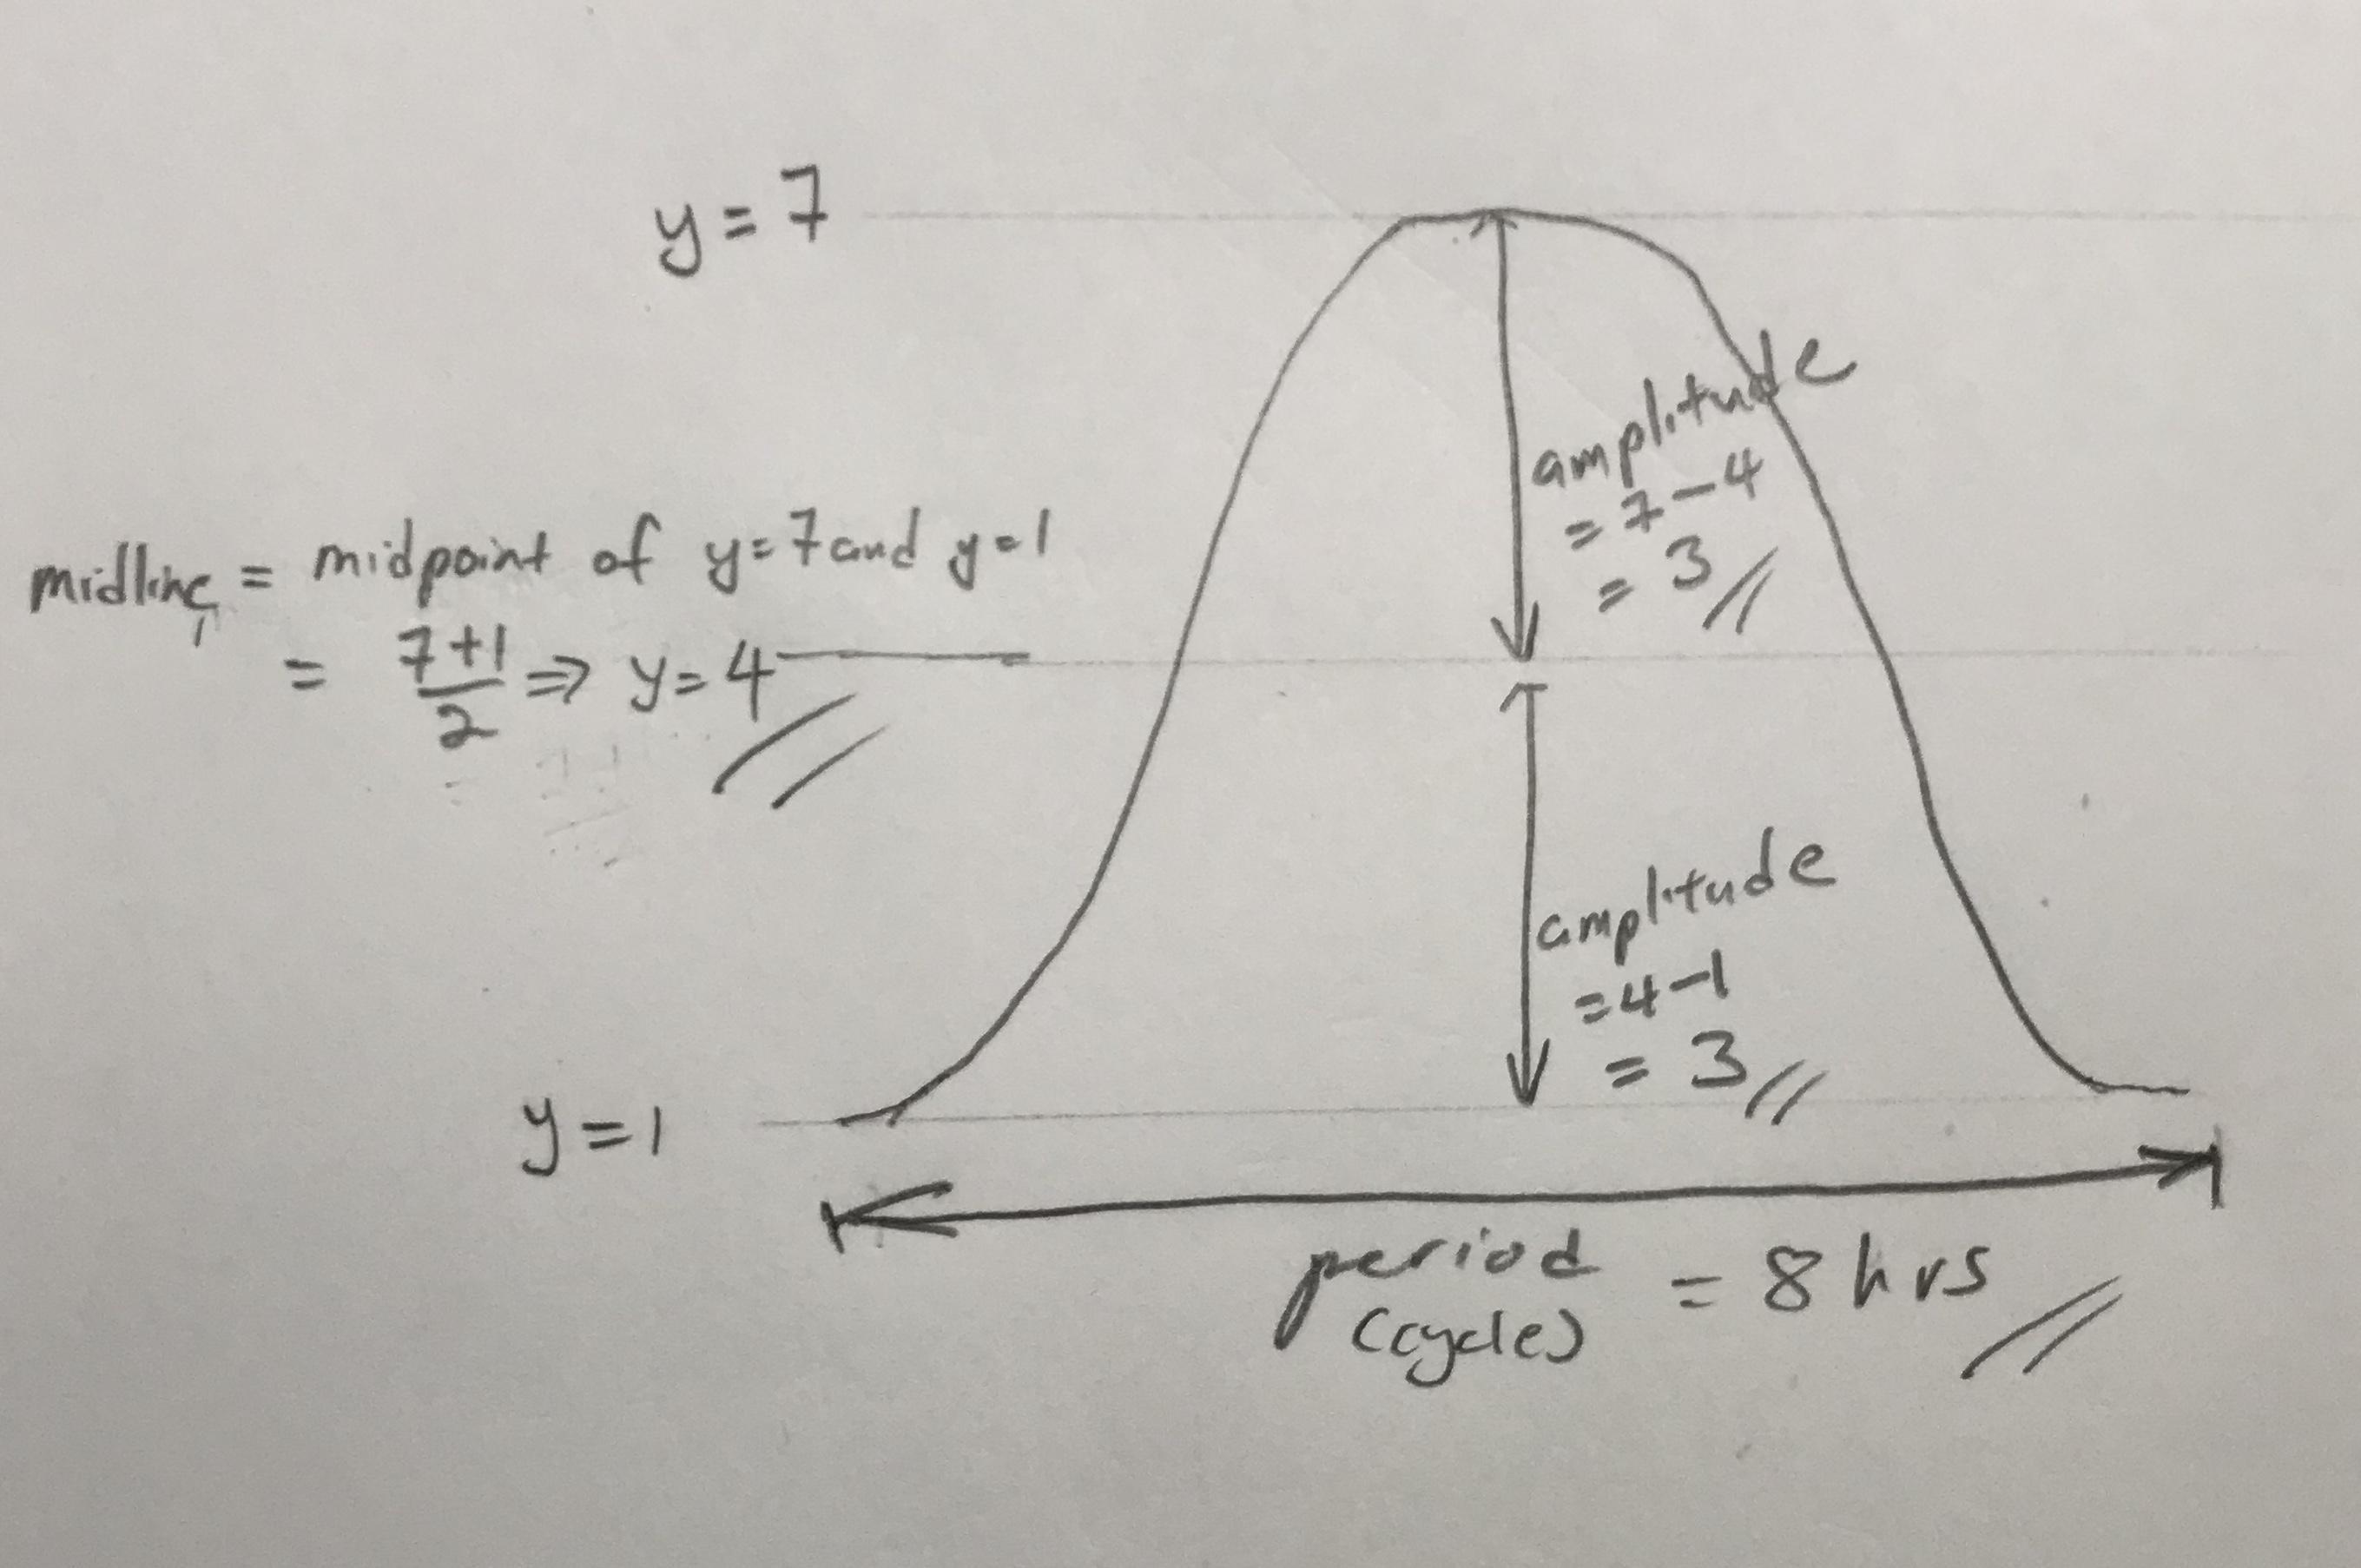 y = 7
amplitude
= 7 - 4
= 3
midline = midpoint of y = 7 and y = 1
= 7+1/2 ⇒ y = 4
amplitude
= 4 - 1
= 3
y = 1
period = 8 hrs
(cycle)